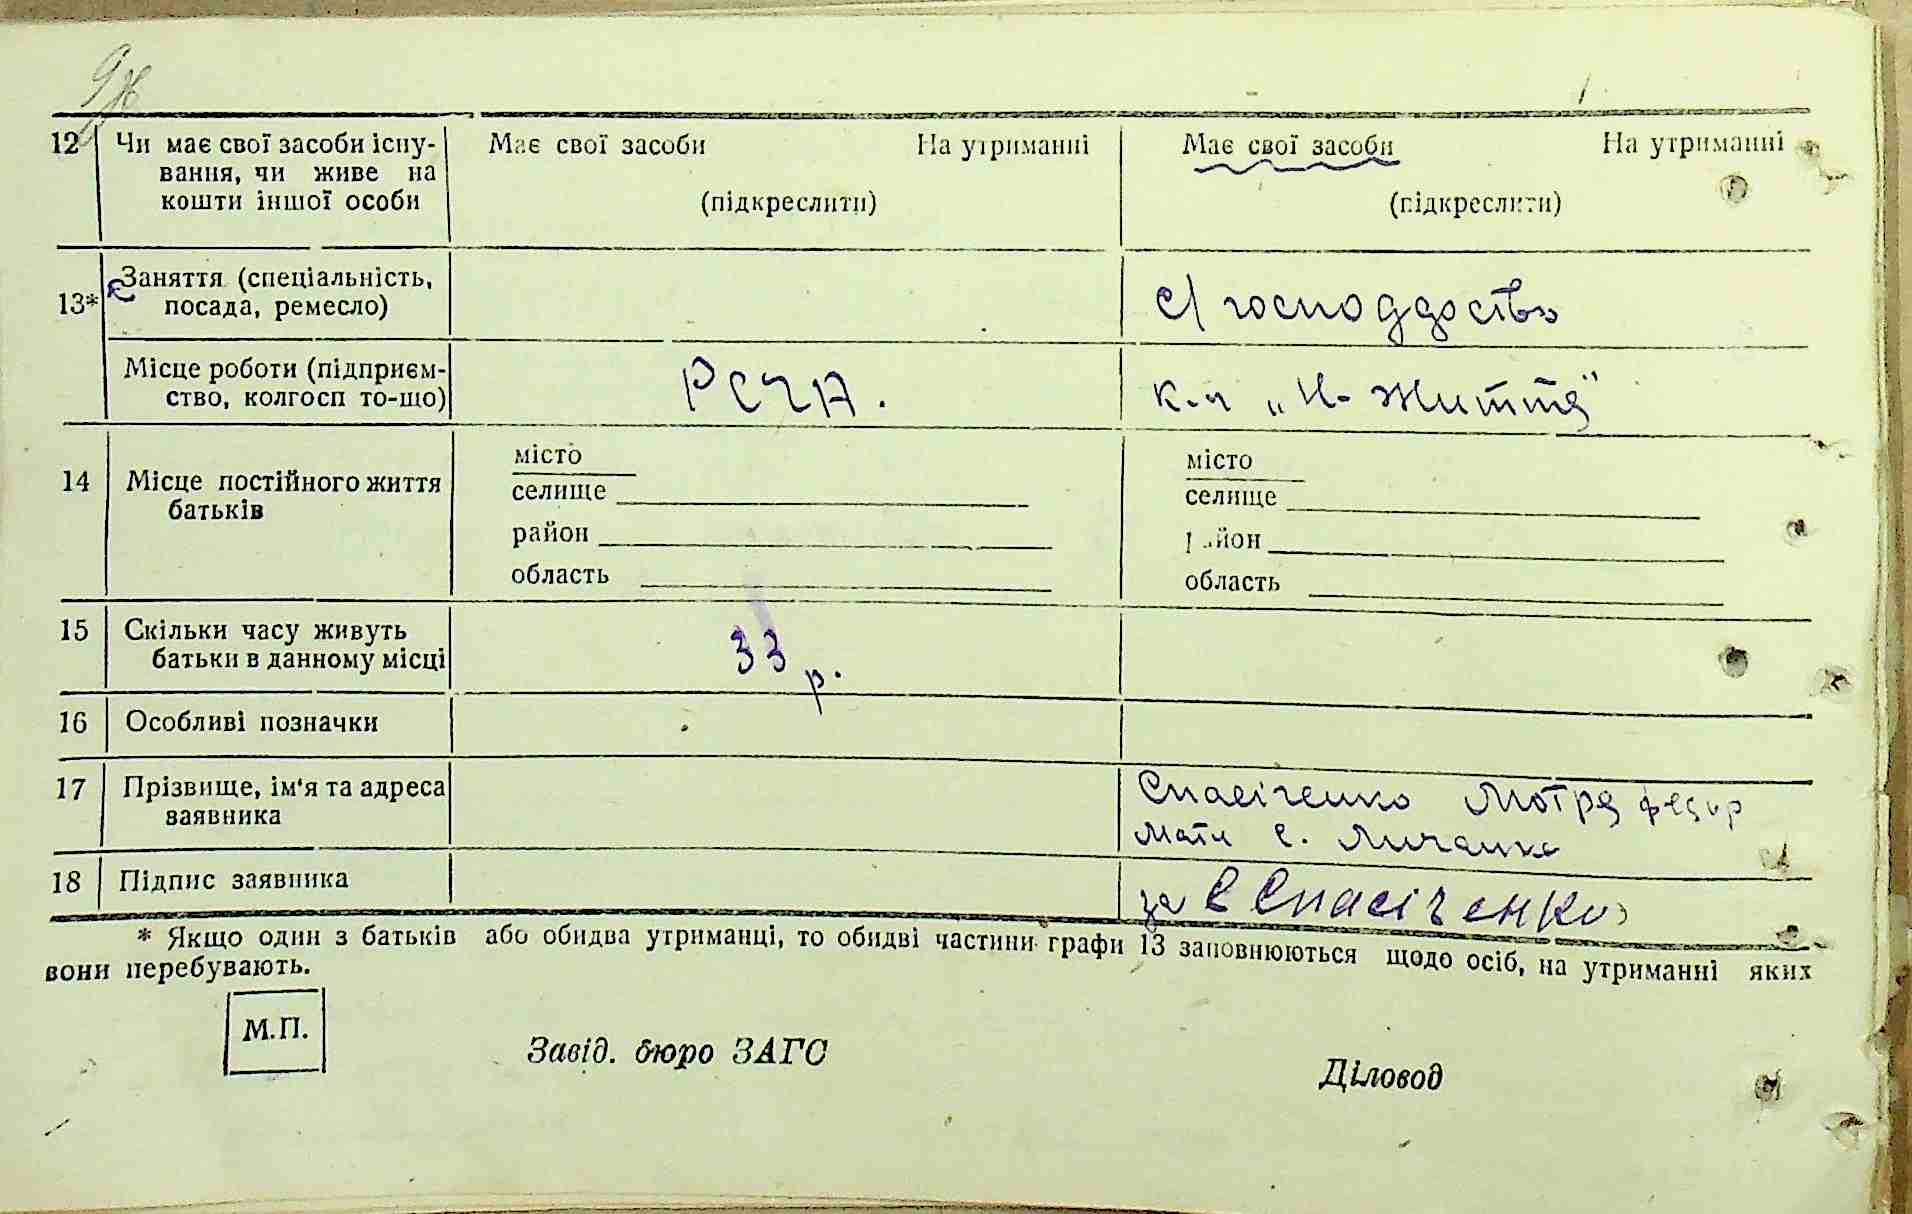 12 Чи має свої засоби існу- Має свої засоби На утриманні Має свої засоби На утриманні
вання, чи живе на
кошти іншої особи (підкреслити) (підкреслити)
Заняття (спеціальність,
13* посада, ремесло) с/господарство
Місце роботи (підприєм- РСЧА. к-п „Н-Життя"
ство, колгосп то-що)
місто місто
14 Місце постійного життя селище селище
батьків
район район
область область
15 Скільки часу живуть 33 р.
батьки в данному місці
16 Особливі позначки
17 Прізвище, ім'я та адреса Спасіченко Мотря Федор
заявника мати с. Личанка
18 Підпис заявника за Є Спасіченко
* Якщо один з батьків або обидва утриманці, то обидві частини графи 13 заповнюються щодо осіб, на утриманні яких
вони перебувають.
М.П.
Завід. бюро ЗАГС Діловод